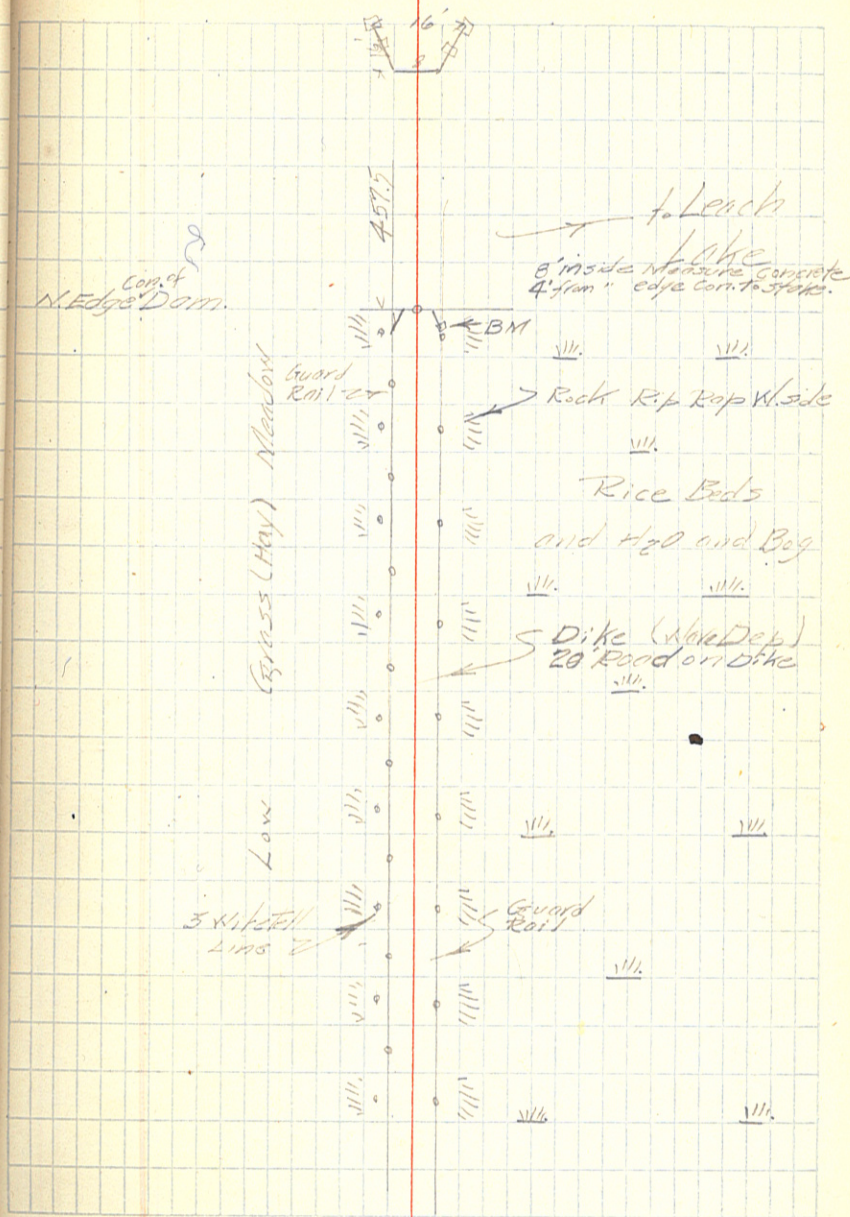 16'
8
457.5
to Leach
Lake
8' inside Measure Concrete
4' from " edge Con. to Stake.
Con. of
N. Edge Dam.
BM
Guard
Rail
Rock Rip Rap W. side
Rice Beds
and H2O and Bog
Low Grass (Hay) Meadow
Dike (War Dep)
20' Road on Dike
3 Wire Tell
Line
Guard
Rail